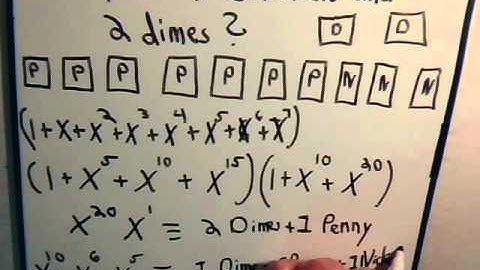 2 dimes? D D
P P P P P P P N N N
(1+x+x^2+x^3+x^4+x^5+x^6+x^7)
(1+x^5+x^10+x^15)(1+x^10+x^20)
x^20 x^1 ≡ 2 Dimes+1 Penny
x^10 x^6 x^5 = 1 Dime